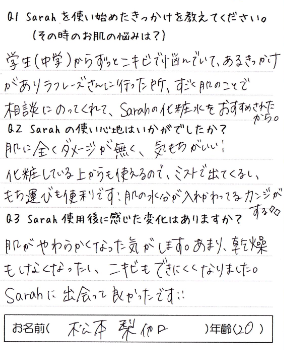 Q1 Sarahを使い始めたきっかけを教えてください。
(その時のお肌の悩みは?)
学生(中学)からずっとニキビで悩んでいて、あるきっかけ
がありラフレーズさんに行った所、すごく肌のことで
相談にのってくれて、Sarahの化粧水をおすすめされた
から。
Q2 Sarahの使い心地はいかがでしたか?
肌に全くダメージが無く、気もちがいい!
化粧している上からも使えるので、ミストで出てくるし、
もち運びも便利です!肌の水分が入れかわってるカンジが
する。
Q3 Sarah使用後に感じた変化はありますか?
肌がやわらかくなった気がします。あまり、乾燥
もしなくなったし、ニキビもできにくくなりました。
Sarahに出会って良かったです!!
お名前(松本 梨)年齢(20)